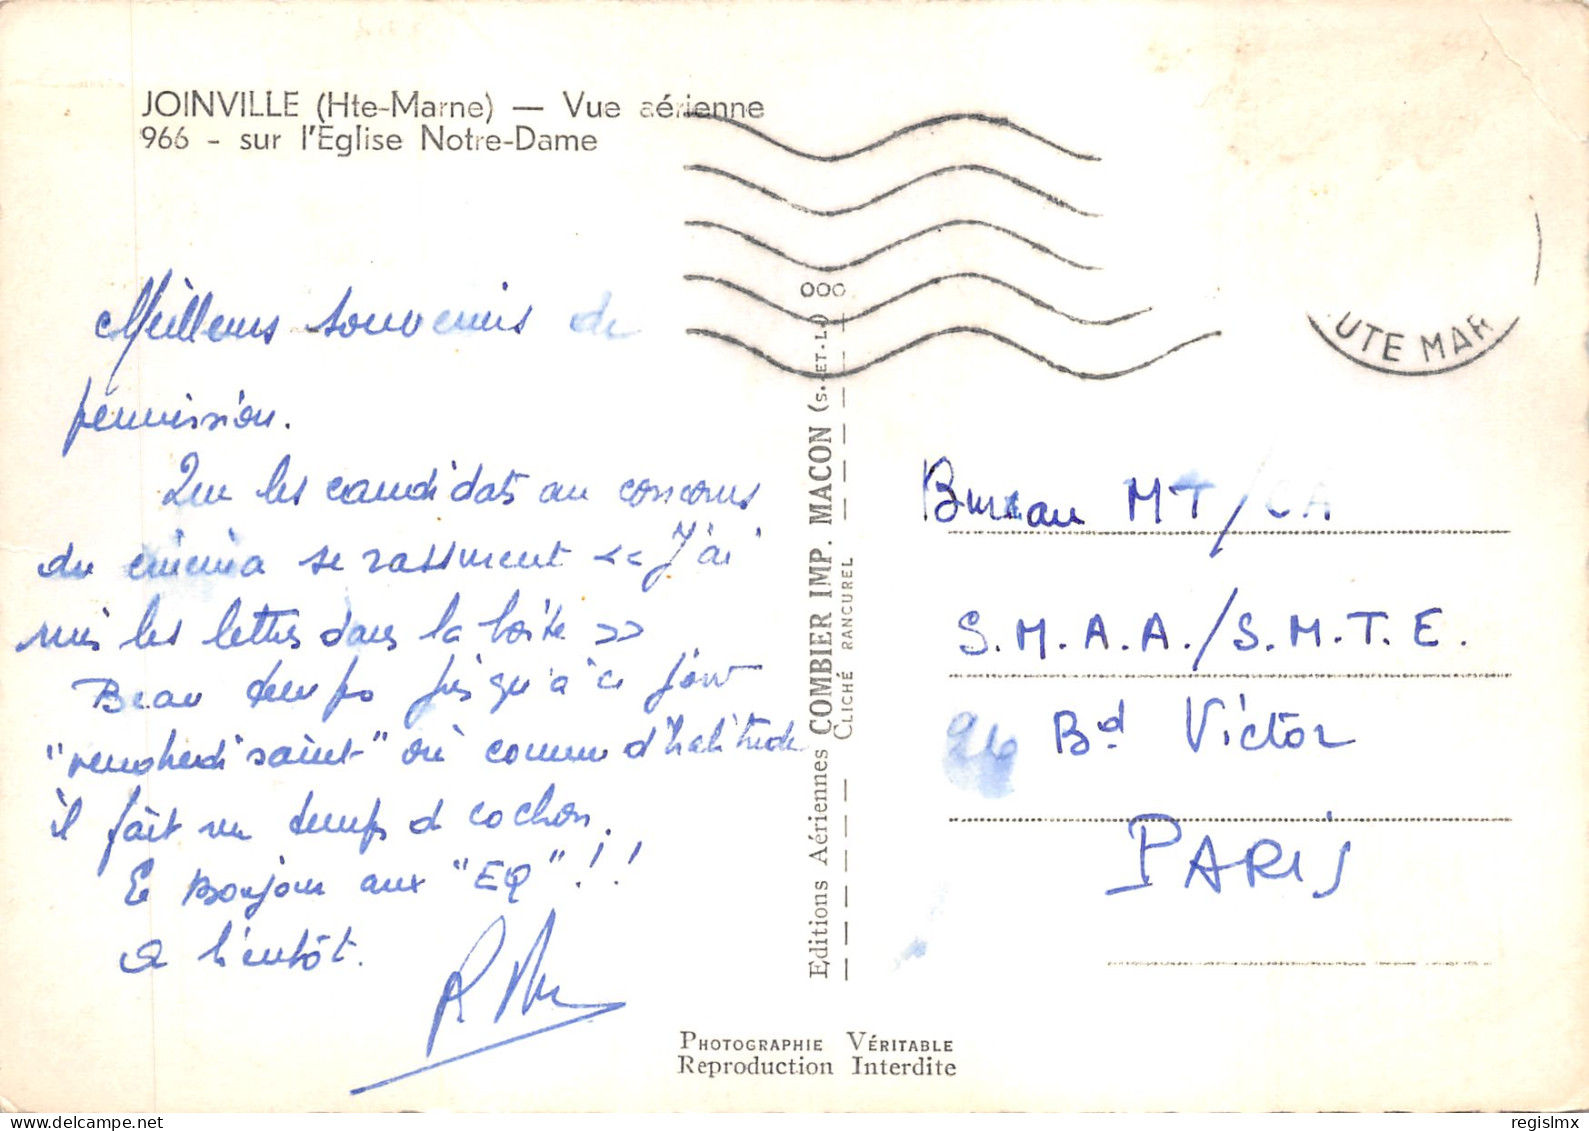 JOINVILLE (Hte-Marne) — Vue aérienne
966 - sur l'Eglise Notre-Dame
Meilleurs souvenirs de
permission.
Que les candidats au concours
du cinéma se rassurent << J'ai
mis les lettres dans la boîte >>
Beau temps jusqu'à ce jour
"vendredi saint" où comme d'habitude
il fait un temps d cochon.
Et Bonjour aux "EQ"!!
A bientôt.
Editions Aériennes COMBIER IMP. MACON (S.-ET-L.) OOO
CLICHÉ RANCUREL
UTE MAR
Bureau MT/CA
S.M.A.A./S.M.T.E.
26 Bd Victor
PARIS
PHOTOGRAPHIE VÉRITABLE
Reproduction Interdite
regislmx